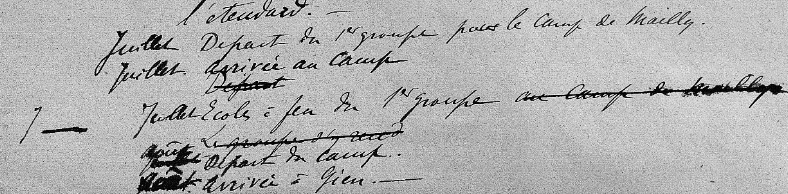 l'étendard. —
Juillet Départ du 1er groupe pour le Camp de Mailly.
Juillet. arrivée au Camp
Départ
7 — Juillet Ecoles à feu du 1er groupe au Camp de Mailly
Le groupe d'
août Départ du Camp.
août arrivée à Gien. —